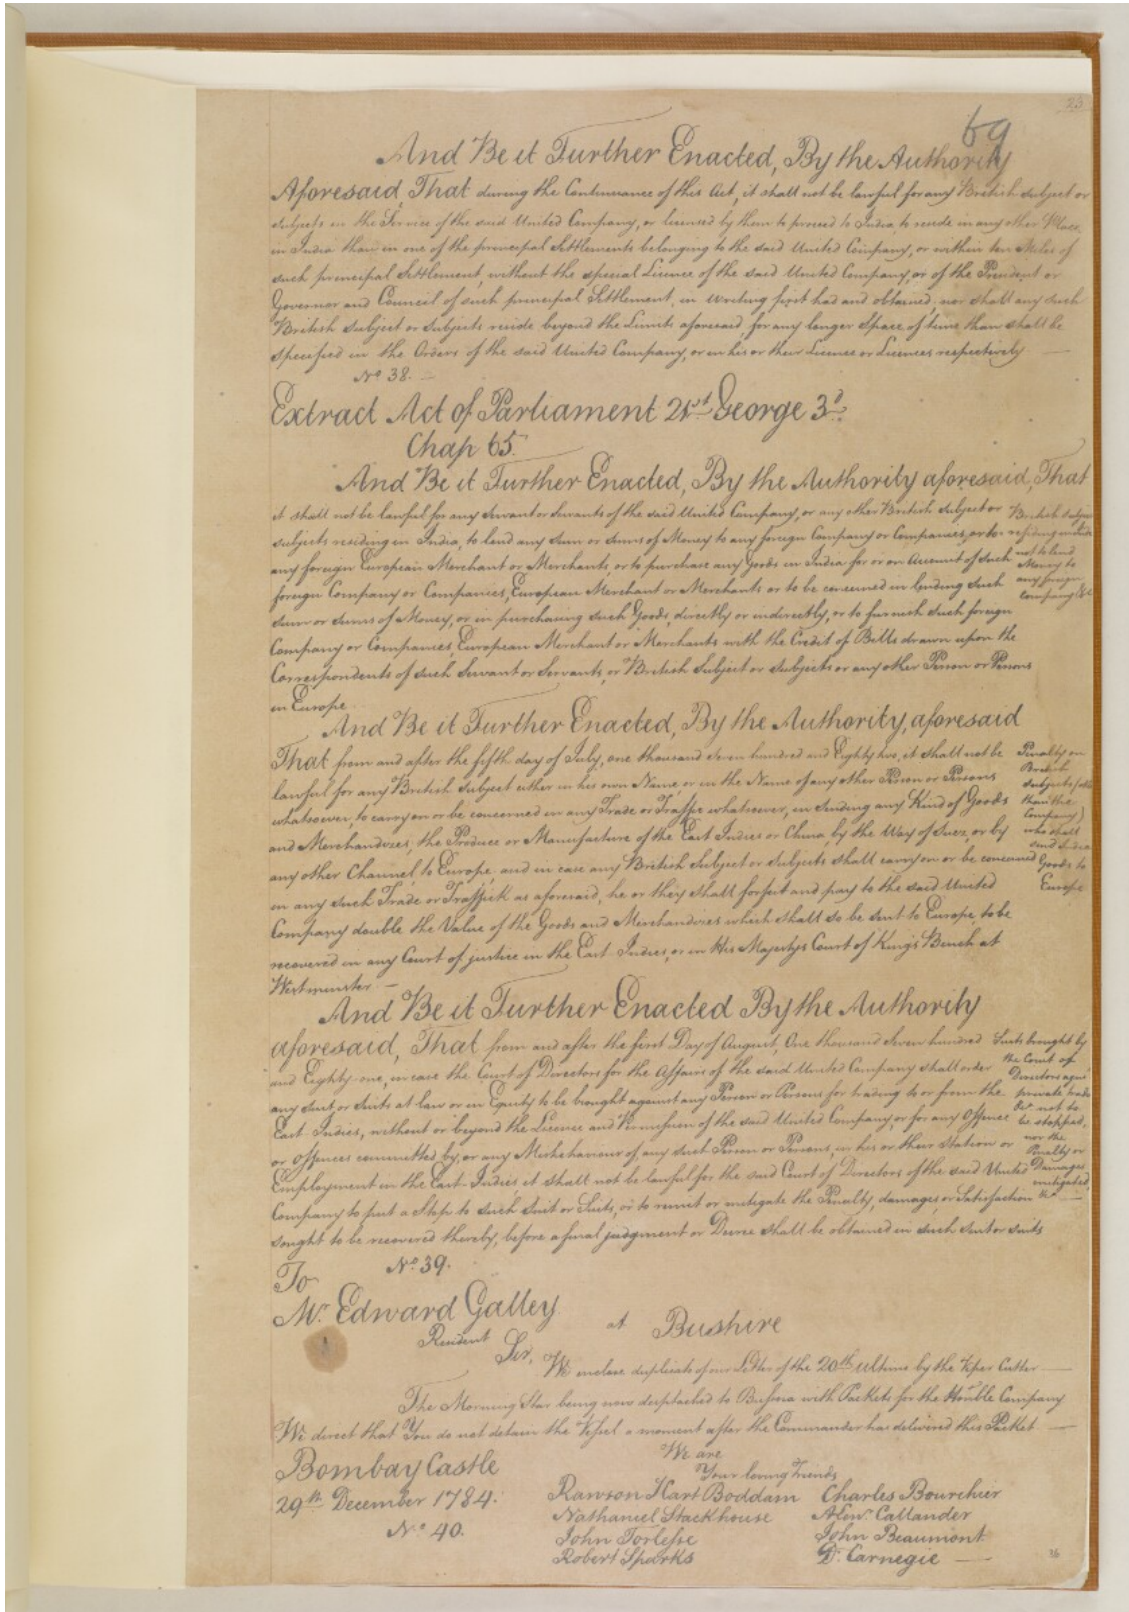 23
69
And Be it Further Enacted, By the Authority
Aforesaid, That during the Continuance of this Act, it shall not be lawful for any British subject or
subjects in the Service of the said United Company, or licensed by them to proceed to India to reside in any other Place
in India than in one of the principal Settlements belonging to the said United Company, or within ten Miles of
such principal Settlement, without the special Licence of the said United Company, or of the President or
Governor and Council of such principal Settlement, in writing first had and obtained; nor shall any such
British Subject or Subjects reside beyond the Limits aforesaid, for any longer Space of time than shall be
specified in the Orders of the said United Company, or in his or their Licence or Licences respectively —
No. 38. —
Extract Act of Parliament 21st George 3d.
Chap 65.
And Be it Further Enacted, By the Authority aforesaid, That
it shall not be lawful for any Servant or Servants of the said United Company, or any other British Subject or
British subjects
subjects residing in India, to lend any Sum or Sums of Money to any foreign Company or Companies, or to
residing in India
any foreign European Merchant or Merchants, or to purchase any Goods in India for or on Account of such
not to lend
Money to
foreign Company or Companies, European Merchant or Merchants or to be concerned in lending such
any foreign
company &c
sum or sums of Money, or in purchasing such Goods, directly or indirectly, or to furnish such foreign
Company or Companies, European Merchant or Merchants with the Credit of Bills drawn upon the
Correspondents of such Servant or Servants, or British Subject or Subjects or any other Person or Persons
in Europe.
And Be it Further Enacted, By the Authority, aforesaid
That from and after the fifth day of July, one thousand seven hundred and Eighty two, it shall not be
Penalty on
British
lawful for any British Subject either in his own Name, or in the Name of any other Person or Persons
subjects
whatsoever, to carry on or be concerned in any Trade or Traffic whatsoever, in sending any Kind of Goods
than the
Company)
and Merchandizes, the Produce or Manufacture of the East Indies or China, by the Way of Suez, or by
who shall
send India
any other Channel, to Europe; and in case any British Subject or Subjects shall carry on or be concerned
Goods to
in any such Trade or Traffick as aforesaid, he or they shall forfeit and pay to the said United
Europe
Company double the Value of the Goods and Merchandizes which shall so be sent to Europe, to be
recovered in any Court of justice in the East Indies, or in His Majestys Court of Kings Bench at
Westminster —
And Be it Further Enacted By the Authority
aforesaid, That from and after the first Day of August, One thousand Seven hundred
Suits brought by
the Court of
and Eighty-one, in case the Court of Directors for the Affairs of the said United Company shall order
Directors against
any suit or suits at law or in Equity to be brought against any Person or Persons for trading to or from the
private trade
&c not to
East Indies, without or beyond the Licence and Permission of the said United Company, or for any Offence
be stopped,
or Offences committed by, or any Misbehaviour of any such Person or Persons, in his or their Station or
nor the
Penalty or
Employment in the East-Indies it shall not be lawful for the said Court of Directors of the said United
Damages
mitigated
Company to put a Stop to such Suit or Suits, or to remit or mitigate the Penalty, damages, or Satisfaction
&c —
sought to be recovered thereby, before a final judgment or Decree shall be obtained in such suit or suits
No. 39.
To
Mr. Edward Galley
Resident
at Bushire
Sir,
We enclose duplicate of our Letter of the 20th ultimo by the Viper Cutter —
The Morning Star being now despatched to Bussora with Packets for the Honble Company
We direct that You do not detain the Vessel a moment after the Commander has delivered this Packet —
We are
Your loving Friends
Bombay Castle
29th December 1784.
Rawson Hart Boddam Charles Bourchier
Nathaniel Stackhouse Alexr. Callander
No. 40.
John Torlesse John Beaumont
Robert Sparks D. Carnegie —